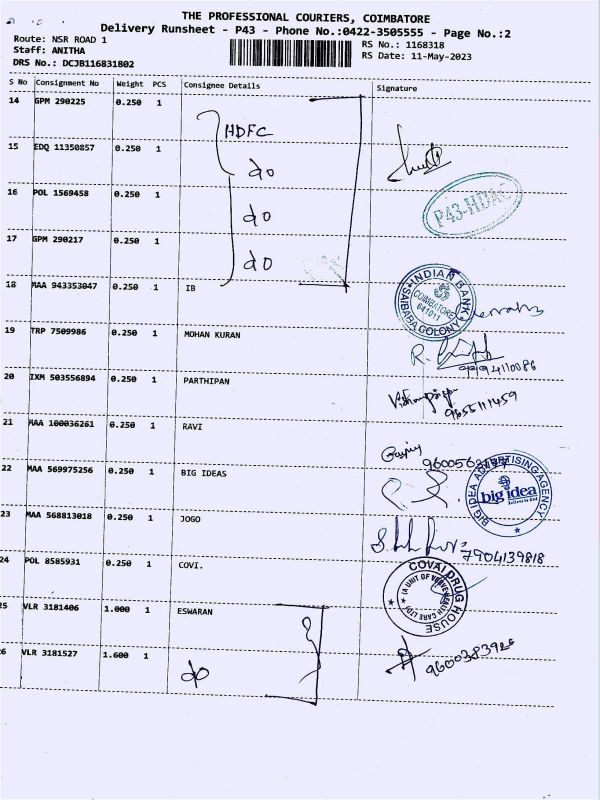 THE PROFESSIONAL COURIERS, COIMBATORE
Delivery Runsheet - P43 - Phone No.:0422-3505555 - Page No.:2
Route: NSR ROAD 1
Staff: ANITHA
DRS No.: DCJB116831802
RS No.: 1168318
RS Date: 11-May-2023
S No Consignment No Weight PCS Consignee Details Signature
14 GPM 290225 0.250 1 HDFC
15 EDQ 11350857 0.250 1 do
16 POL 1569458 0.250 1 do
P43-HDFC
17 GPM 290217 0.250 1 do
18 MAA 943353047 0.250 1 IB
INDIAN BANK
COIMBATORE
641011
SAIBABA COLONY
19 TRP 7509986 0.250 1 MOHAN KURAN
20 IXM 503556894 0.250 1 PARTHIPAN
9655111459
21 MAA 100036261 0.250 1 RAVI
22 MAA 569975256 0.250 1 BIG IDEAS
BIG IDEA ADVERTISING AGENCY
big idea
23 MAA 568813018 0.250 1 JOGO
7904139818
24 POL 8585931 0.250 1 COVI.
COVAI DRUG HOUSE
25 VLR 3181406 1.000 1 ESWARAN
26 VLR 3181527 1.600 1 do